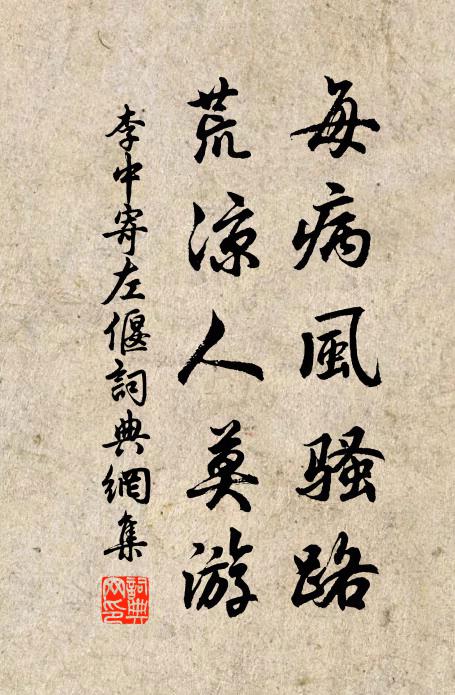 每病風騷路
荒涼人莫游
李中寄左偃詞典網集
詞典
网印